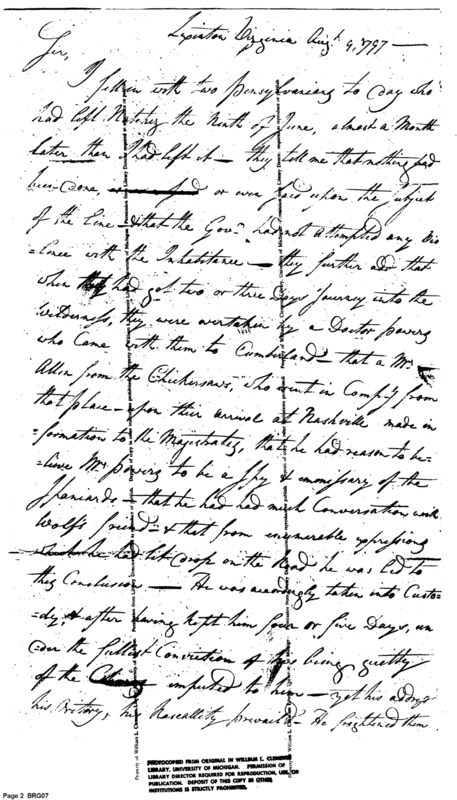 Lexinton Virginia Augt. 9, 1797 —
Sir,
I fell in with two Pensylvanians to day who
had left Natchez the Ninth of June, almost a Month
later than I had left it — they tell me that nothing had
been done, or even said upon the subject
of the Line — & that the Govr. had not attempted any Vio
=lence with the Inhabitance — they further add that
when they had got two or three Days Journey into the
Wilderness, they were overtaken by a Doctor Powers
who Came with them to Cumberland — that a Mr.
Allin from the Chickersaws, who went in Compy. from
that place — upon their arrival at Nashville made in
=formation to the Magestrates, that he had reason to be=
=lieve Mr. Powers to be a Spy & emmissary of the
Spaniards — that he had had much Conversation with
Wolfs friend — & that from innumerable expressions
which he had let drop on the Road he was led to
this Conclusion — He was accordingly taken into Custo=
=dy, & after having kept him four or five Days, un
=der the fullest Conviction of his being guilty
of the imputed to him — yet his address
his Oratory, his Rascallity prevail'd — He frightened them
Property of William L. Clements Library
PHOTOCOPIED FROM ORIGINAL IN WILLIAM L. CLEMENTS
LIBRARY, UNIVERSITY OF MICHIGAN. PERMISSION OF
LIBRARY DIRECTOR REQUIRED FOR REPRODUCTION, USE, OR
PUBLICATION. DEPOSIT OF THIS COPY IN OTHER
INSTITUTIONS IS STRICTLY PROHIBITED.
Page 2 BRG07